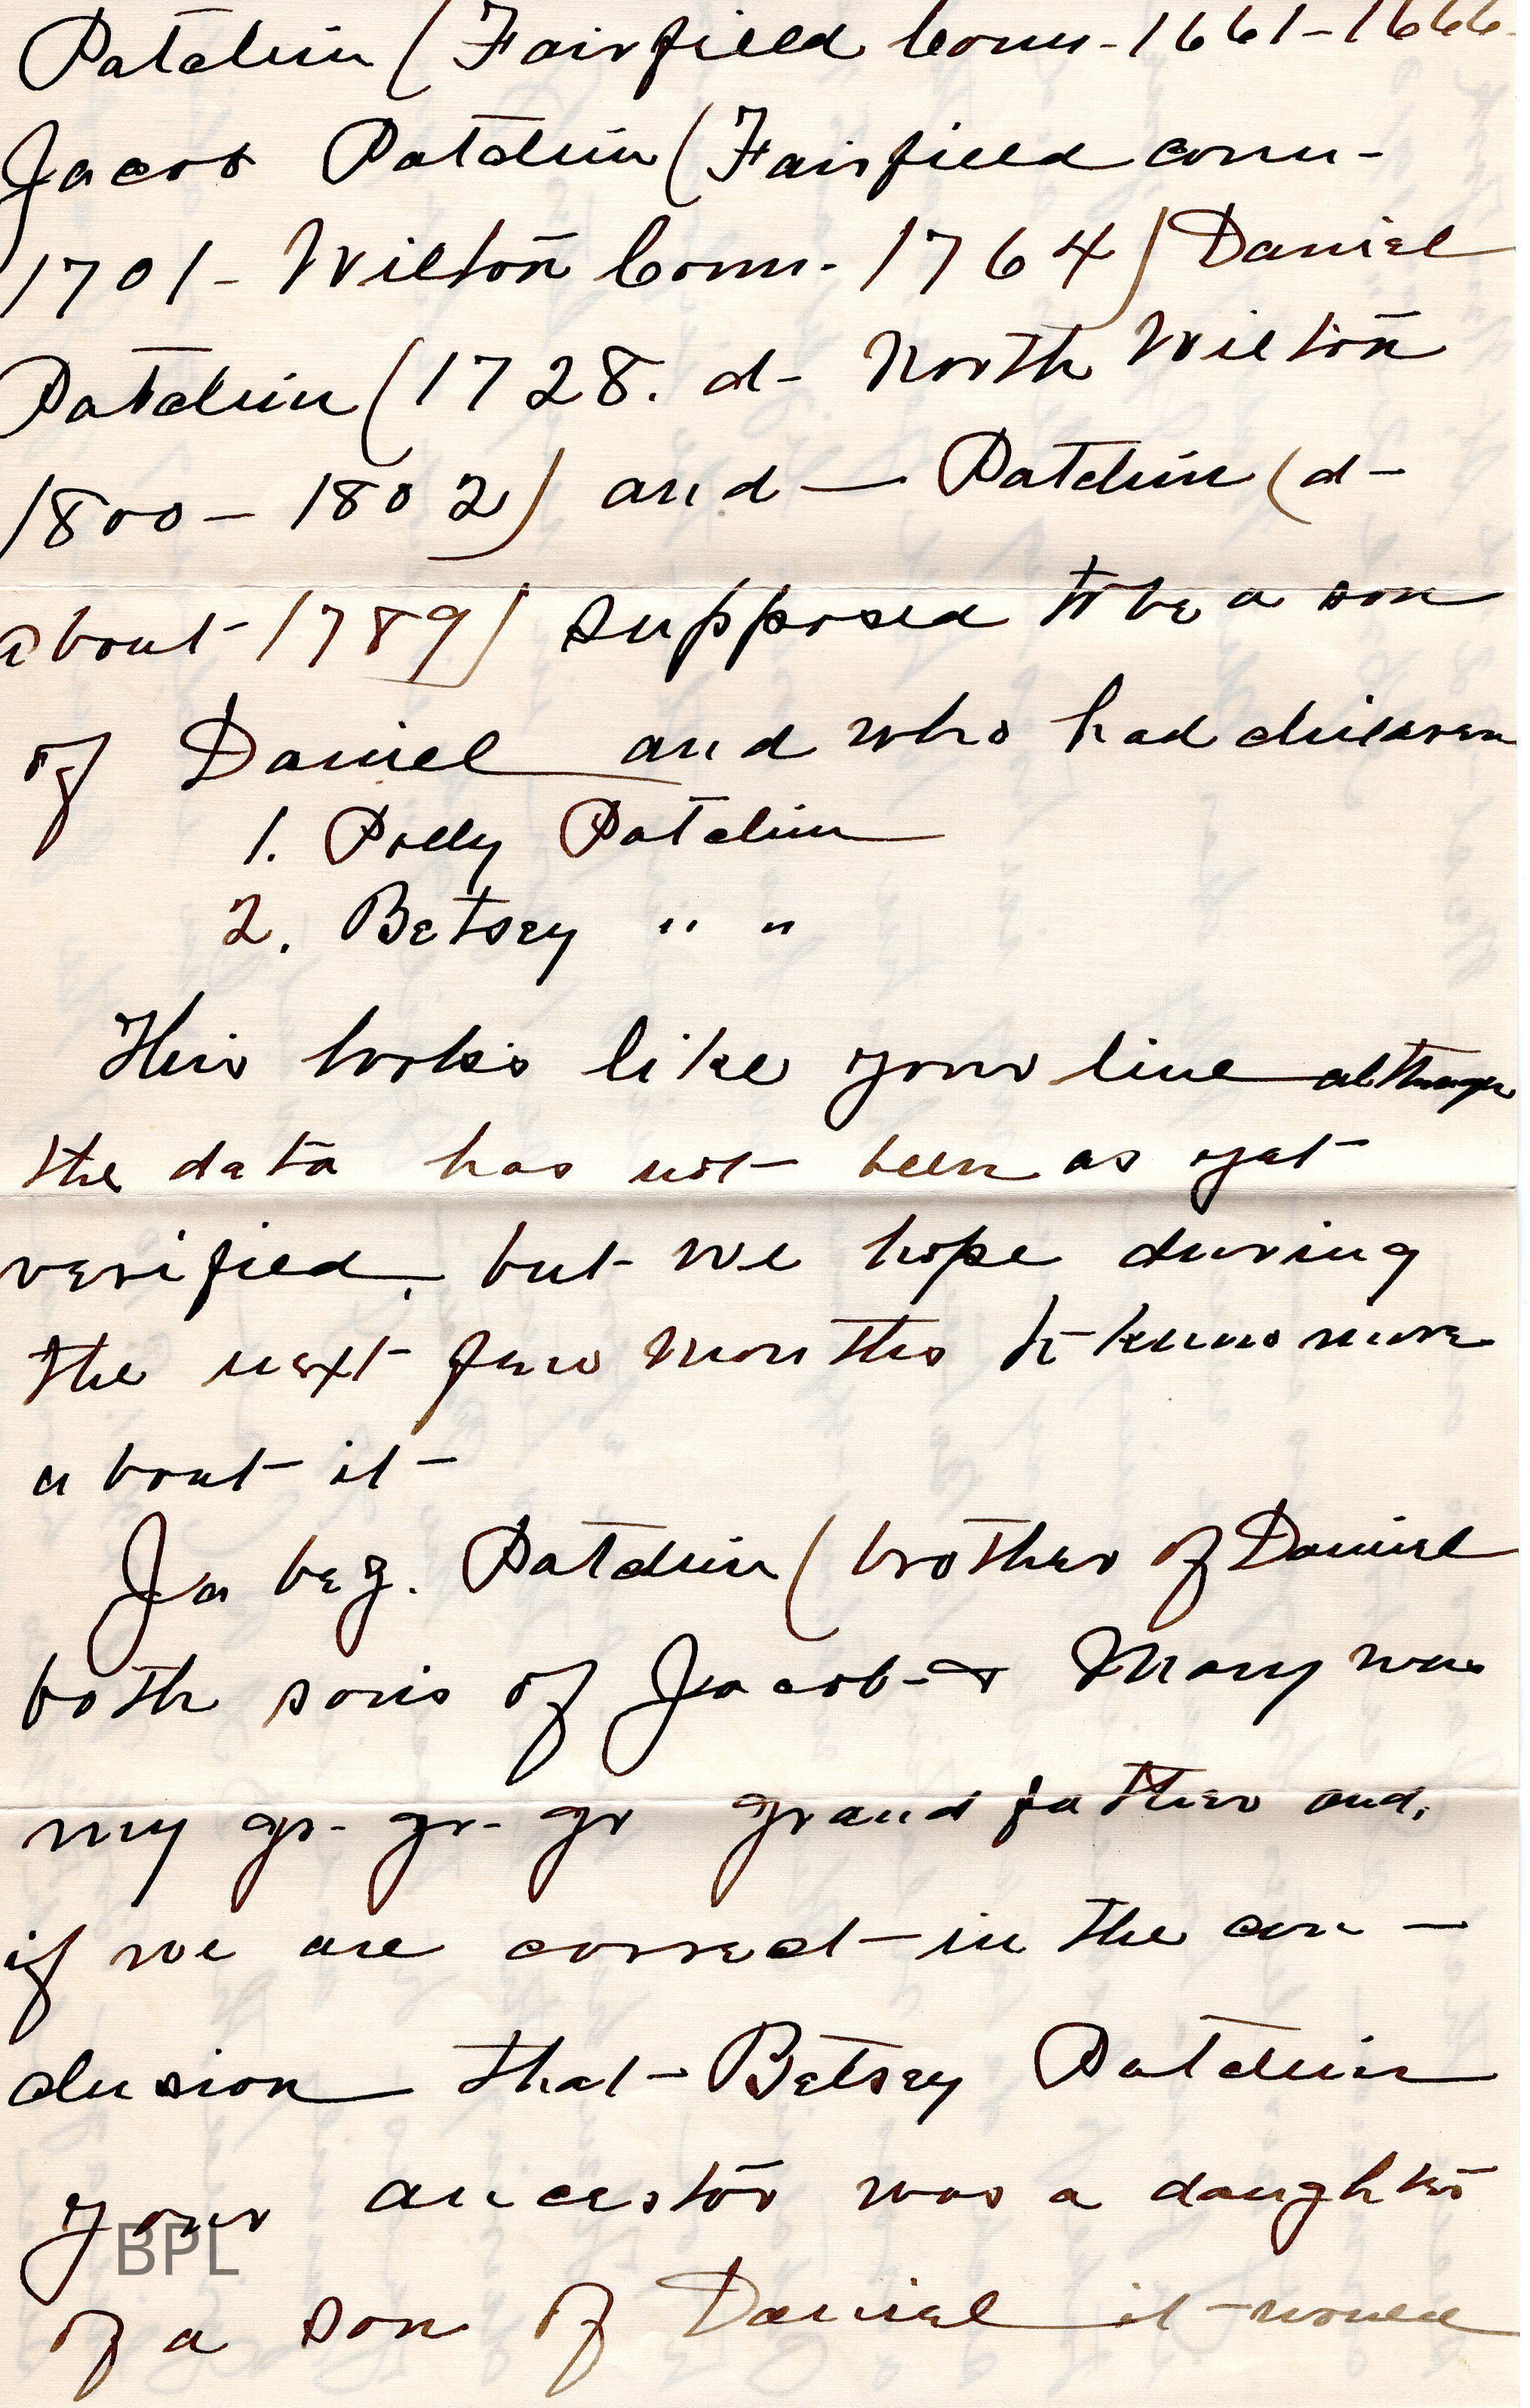 Patchin (Fairfield Conn-1661-1666-
Jacob Patchin (Fairfield Conn-
1701- Wilton Conn- 1764) Daniel
Patchin (1728. d- North Wilton
1800- 1802) and — Patchin (d-
about 1789) supposed to be a son
of Daniel and who had children
1. Polly Patchin
2. Betsey " "
This looks like your line although
the data has not been as yet
verified, but we hope during
the next few months to know more
about it-
Jabez. Patchin (brother of Daniel
both sons of Jacob & Mary was
my gr- gr- gr grand father and,
if we are correct in the con-
clusion that Betsey Patchin
your ancestor was a daughter
BPL
of a son of Daniel it would